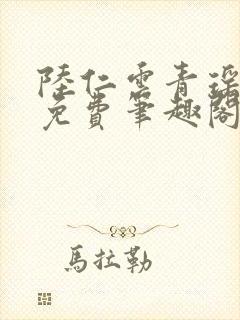 陸仁雲青瑶
免費筆趣閣
馬拉勒